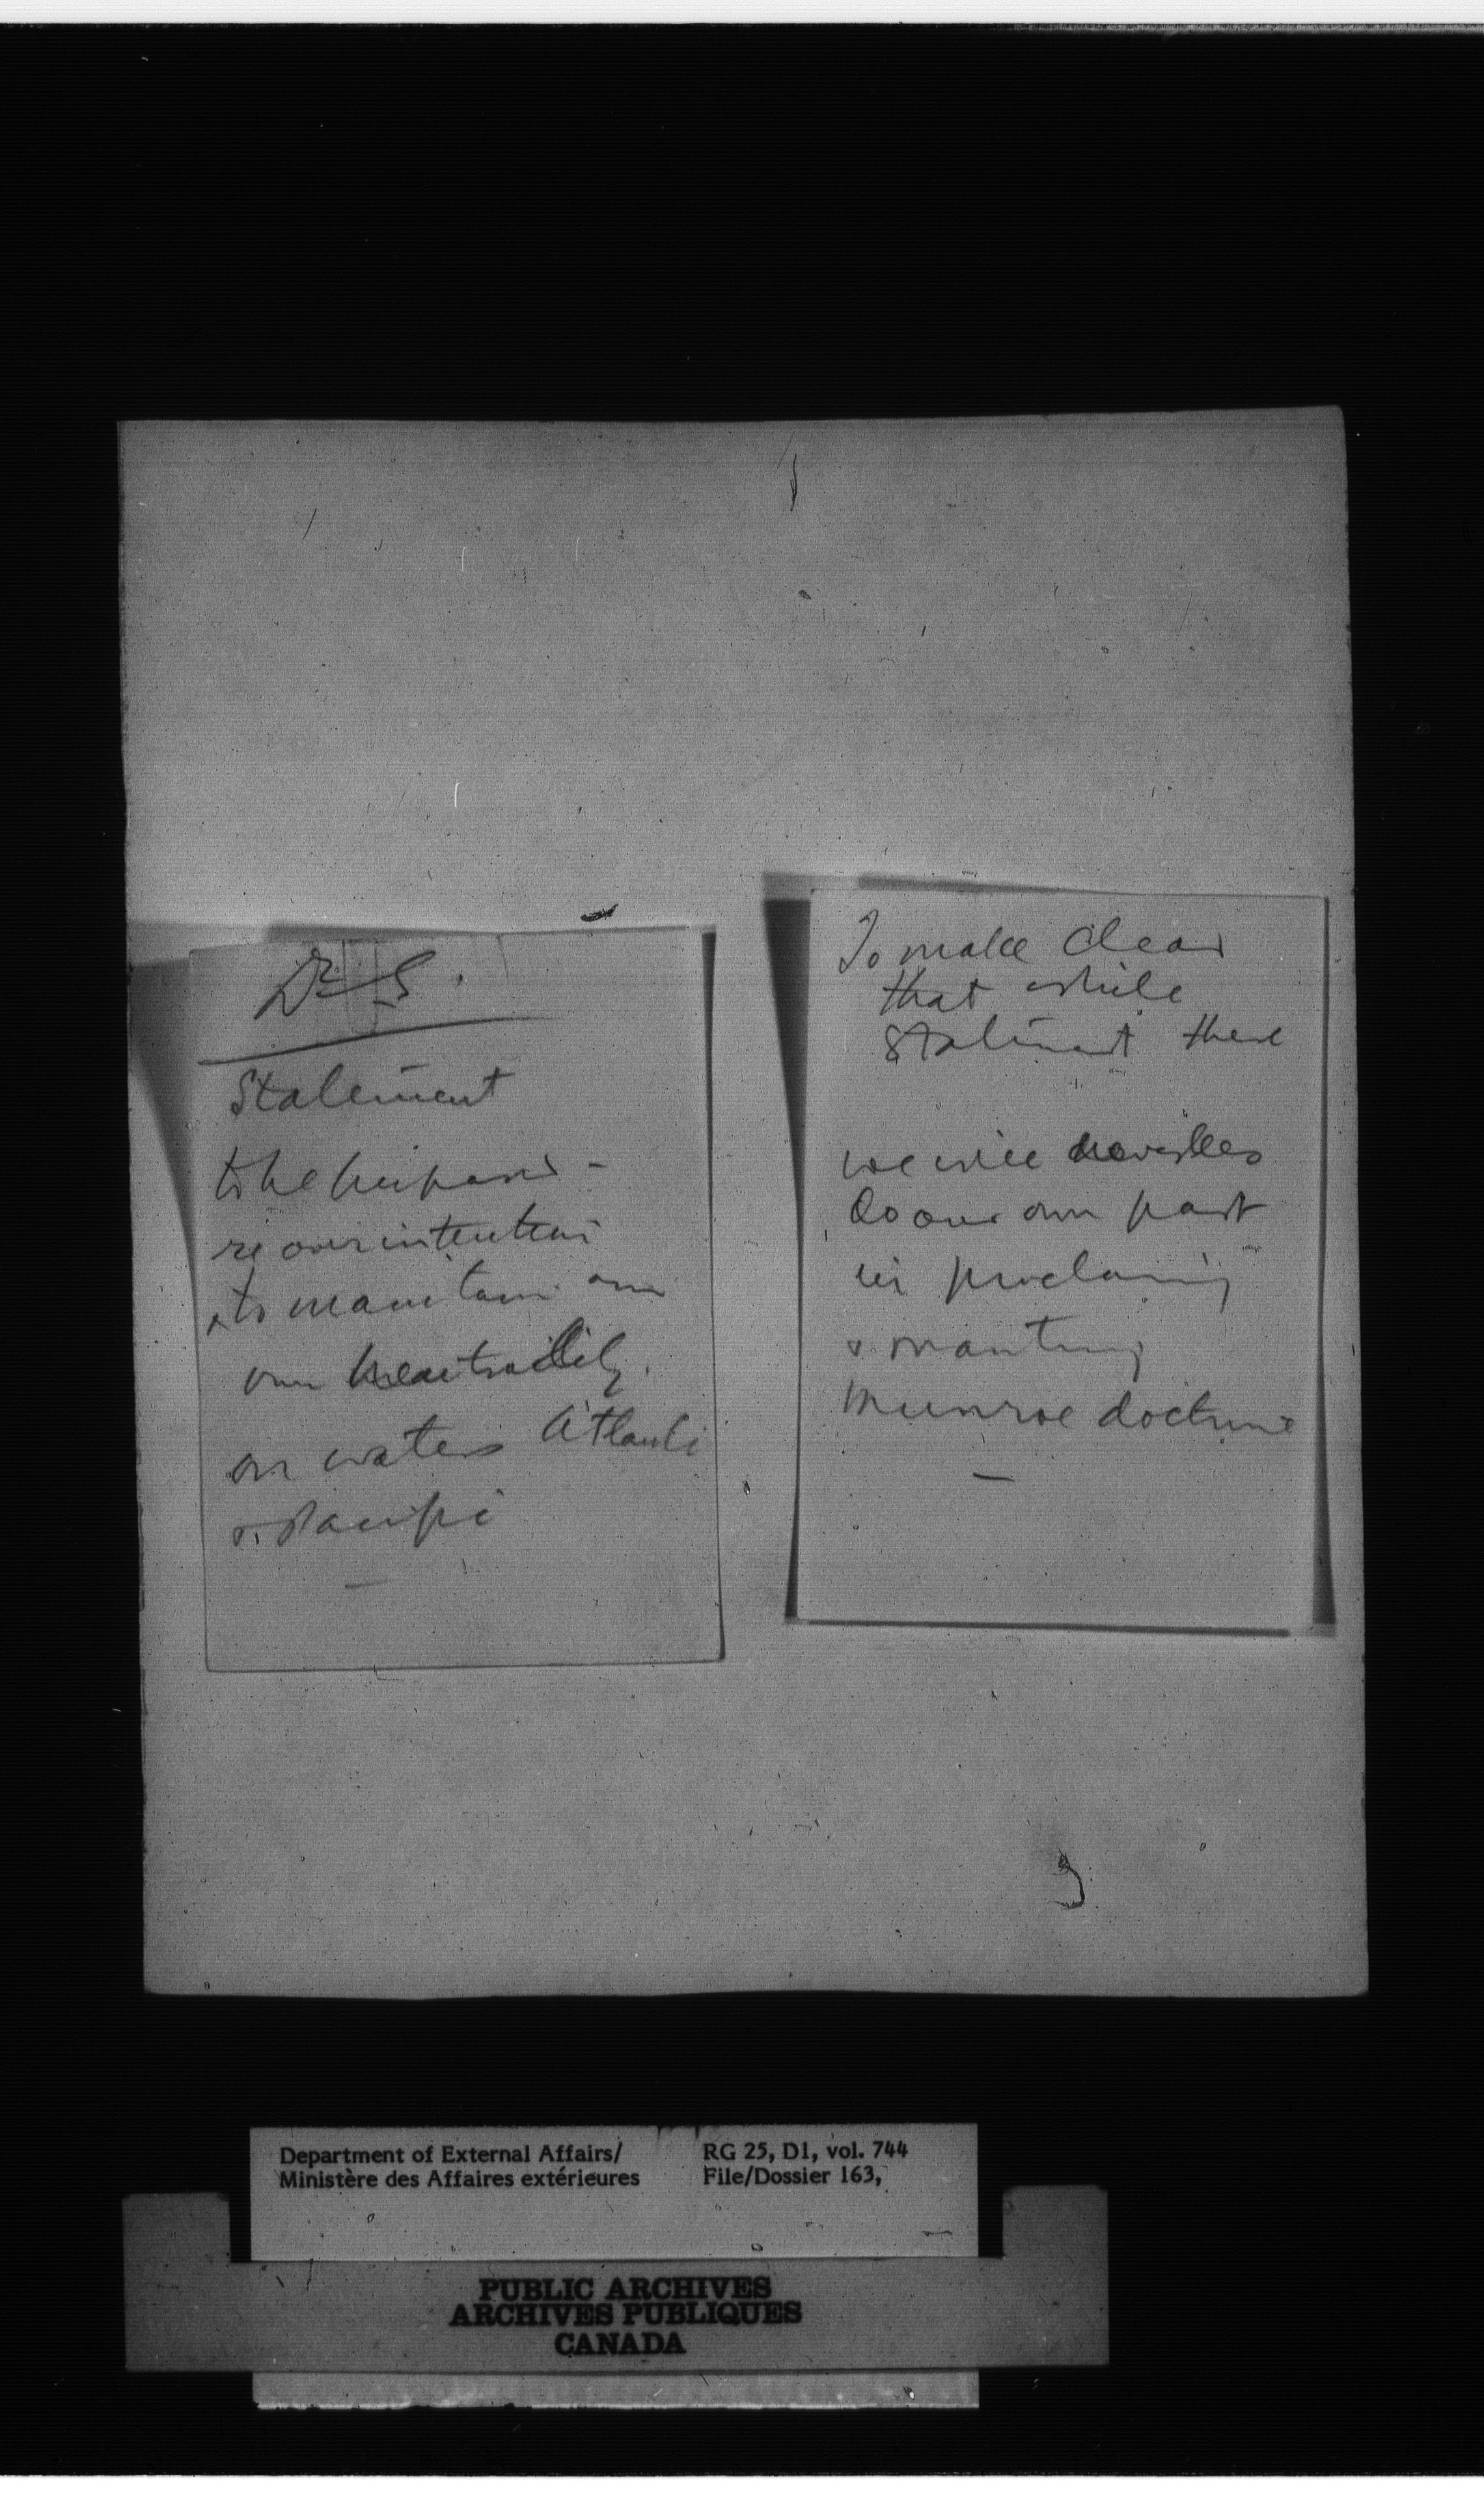 Dr S.
Statement
to be prepared -
re our intention
to maintain our
own neutrality
on waters Atlantic
& Pacific
To make clear
that while
Statement there
we will
Do our own part
in proclaiming
&
Munroe doctrine
Department of External Affairs/
Ministère des Affaires extérieures
RG 25, D1, vol. 744
File/Dossier 163,
PUBLIC ARCHIVES
ARCHIVES PUBLIQUES
CANADA